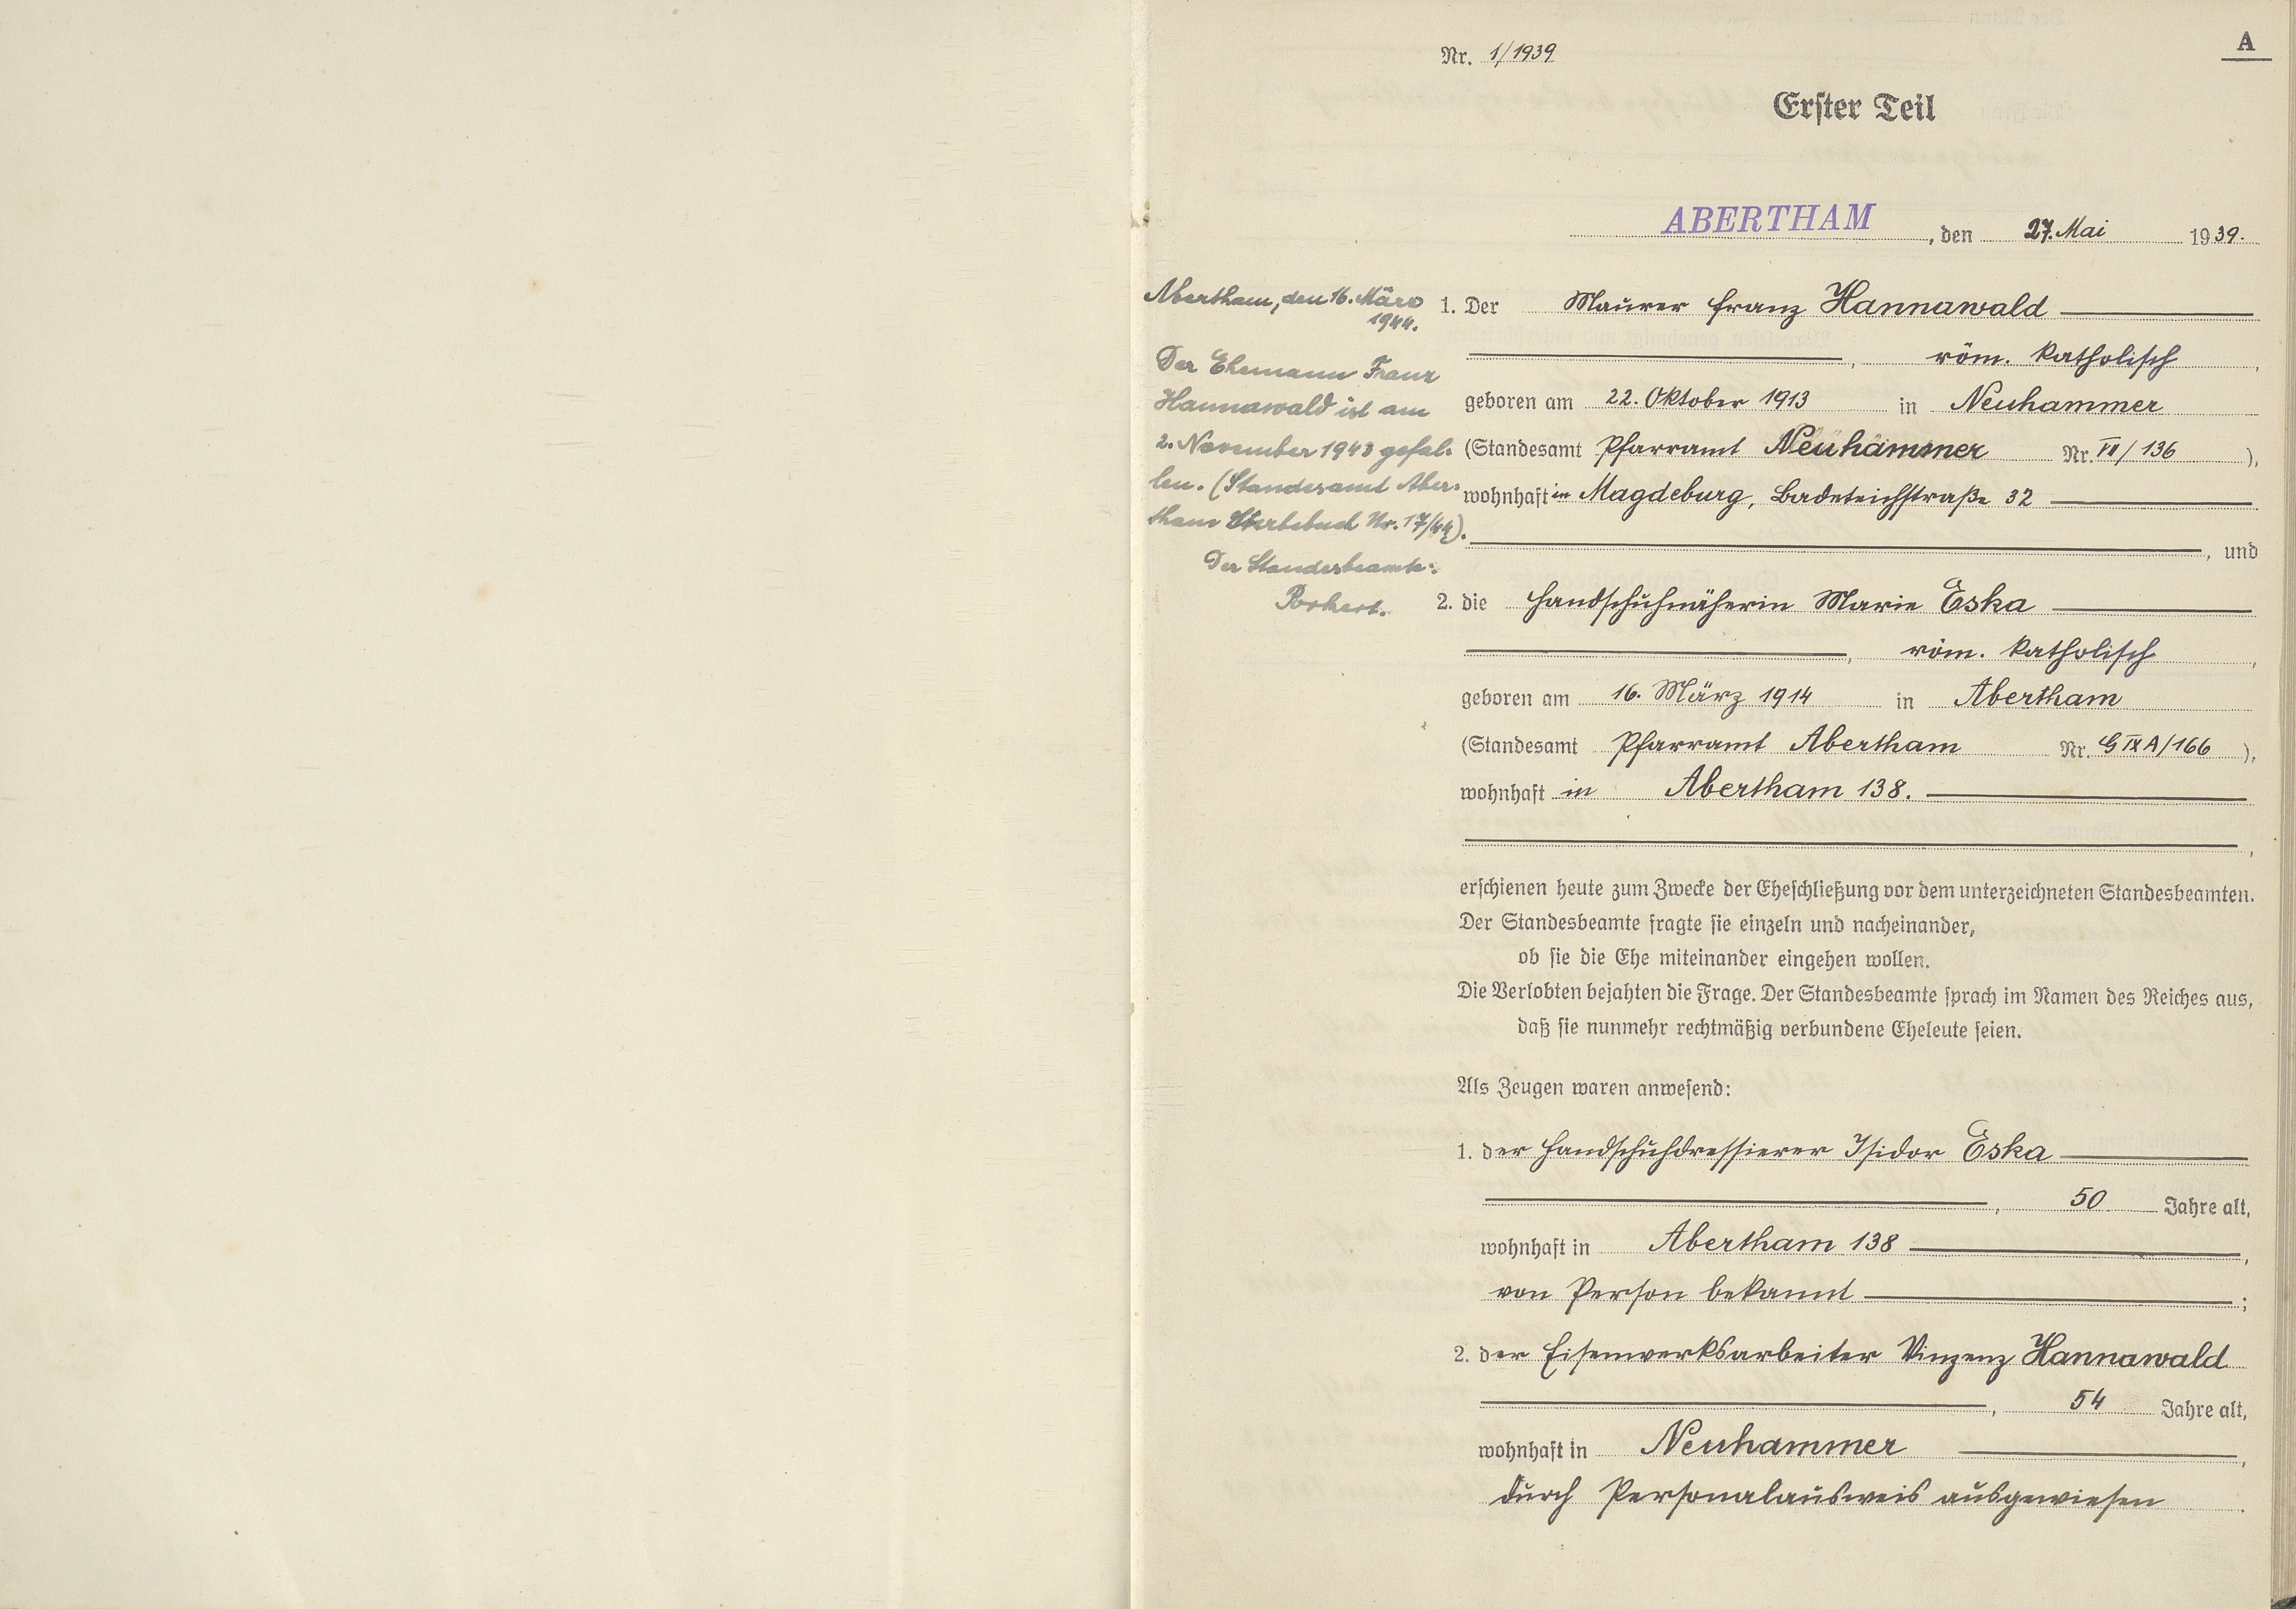 A
Nr. 1/1939
Erster Teil
ABERTHAM, den 27. Mai 1939.
Abertham, den 16. März
1944.
Der Ehemann Franz
Hannawald ist am
2. November 1943 gefal-
len. (Standesamt Aber-
tham Sterbebuch Nr. 17/44).
Der Standesbeamte:
1. Der Maurer Franz Hannawald
, röm. katholisch,
geboren am 22. Oktober 1913 in Neuhammer
(Standesamt Pfarramt Neuhammer Nr. VI/136),
wohnhaft in Magdeburg, Badeteichstraße 32
, und
2. die Handschuhnäherin Marie Eska
, röm. katholisch,
geboren am 16. März 1914 in Abertham
(Standesamt Pfarramt Abertham Nr. G IX A/166),
wohnhaft in Abertham 138.
,
erschienen heute zum Zwecke der Eheschließung vor dem unterzeichneten Standesbeamten.
Der Standesbeamte fragte sie einzeln und nacheinander,
ob sie die Ehe miteinander eingehen wollen.
Die Verlobten bejahten die Frage. Der Standesbeamte sprach im Namen des Reiches aus,
daß sie nunmehr rechtmäßig verbundene Eheleute seien.
Als Zeugen waren anwesend:
1. der Handschuhdressierer Isidor Eska
, 50 Jahre alt,
wohnhaft in Abertham 138,
von Person bekannt;
2. der Eisenwerksarbeiter Vinzenz Hannawald
, 54 Jahre alt,
wohnhaft in Neuhammer,
durch Personalausweis ausgewiesen.